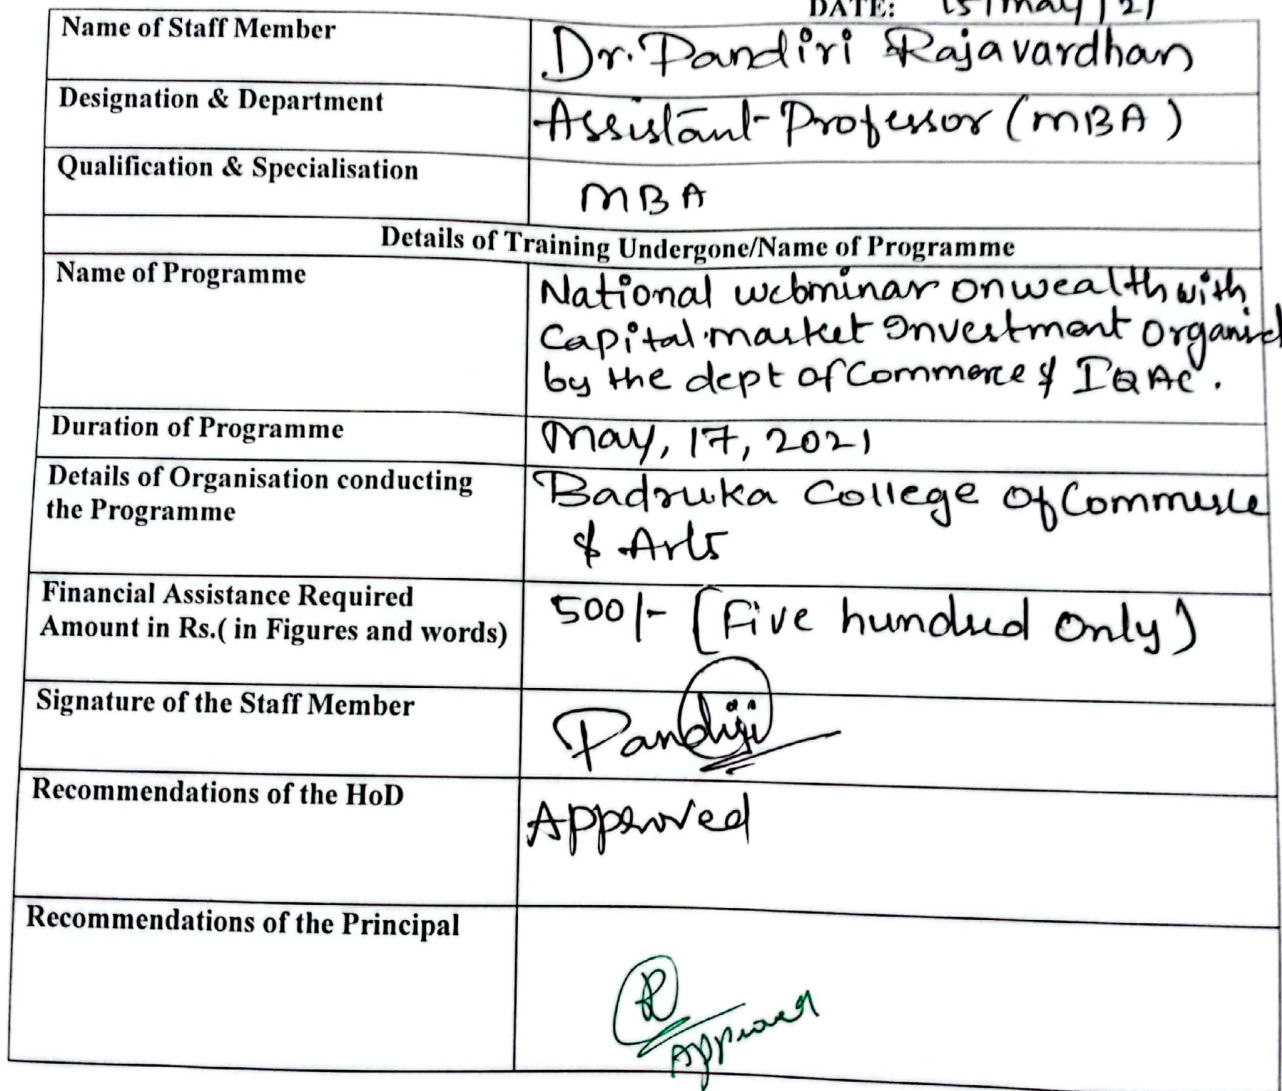 DATE: 15/may/21
Name of Staff Member
Dr. Pandiri Rajavardhan
Designation & Department
Assistant Professor (MBA)
Qualification & Specialisation
MBA
Details of Training Undergone/Name of Programme
Name of Programme
National webminar on wealth with
Capital market Investment Organised
by the dept of Commerce & IQAC.
Duration of Programme
May, 17, 2021
Details of Organisation conducting
the Programme
Badruka College of Commerce
& Arts
Financial Assistance Required
Amount in Rs.( in Figures and words)
500/- [Five hundred only)
Signature of the Staff Member
Pandiri
Recommendations of the HoD
Approved
Recommendations of the Principal
Approved